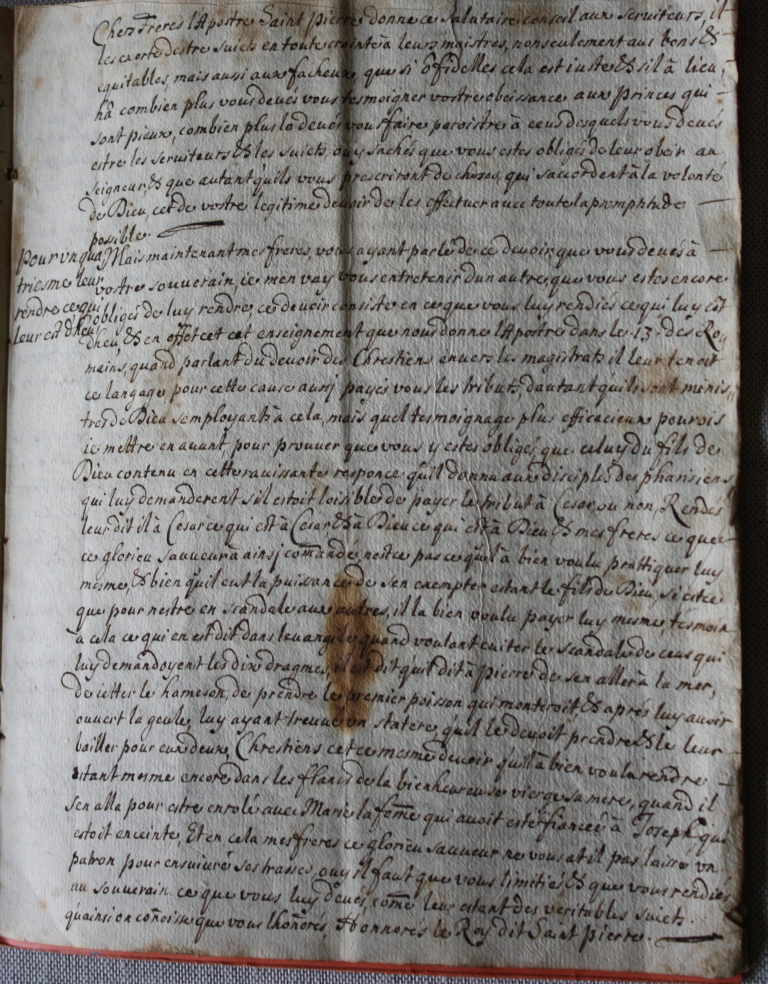 Chers freres l'Apostre Saint pierre donne ce salutaire conseil aux seruiteurs, il
les exorte destre suiets en toute crainte à leurs maistres, nonseulement aus bons &
equitables, mais aussi aux facheux, que si ô fidelles cela est iuste & sil à lieu,
hâ combien plus vous deués vous tesmoigner vostre obeissance aux princes qui
sont pieux, combien plus la deués vous faire paroistre à ceus desquels vous deués
estre les seruiteurs & les suiets, ouy sachés que vous estes obligés de leur obeir au
seigneur, & que autant quils vous prescriront de choses, qui saccordent à la volonté
de Dieu, cet de vostre legitime deuoir de les effectuer auec toute la promptitude
possible.
pour vn qua
triesme leur
rendre ce qui
leur est dheu
Mais maintenant mes freres, vous ayant parlé de ce deuoir que vous deués à
vostre souuerain, ie men vay vous entretenir dun autre que vous estes encore
obligés de luy rendre ce deuoir consiste en ce que vous luy rendies ce qui luy est
dheu, & en effet cet cet enseignement que nous donne l'Apostre dans le 13. des Ro
mains, quand parlant du deuoir des Chrestiens enuers les magistrats il leur tenoit
ce langage pour cette cause aussj payés vous les tributs, dautant quils sont minis
tres de Dieu semployants à cela, mais quel tesmoignage plus efficacieux pourois
ie mettre en auant pour prouuer que vous y estes obligés, que celuy du fils de
Dieu contenu en cette rauissante responce quil donna aux disciples des pharisiens
qui luy demanderent sil estoit loisible de payer le tribut à Cesar, ou non, Rendés
leur dit il à Cesar ce qui est à Cesar & à Dieu ce qui est à Dieu & mes freres ce que
ce glorieu sauueur à ainsj comandé, nestce pas ce quil à bien voulu prattiquer luy
mesme, & bien quil eut la puissance de sen exempter estant le fils de Dieu si estce
que pour nestre en scandale aux autres, il la bien voulu payer luy mesme tesmoin
à cela ce qui en est dit dans leuangile quand voulant euiter le scandale de ceus qui
luy demandoyent les dixdragmes, il est dit quil dit à pierre de sen aller à la mer,
de ietter le hameson, de prendre le premier poisson qui monteroit & aprés luy auoir
ouuert la geule, luy ayant treuué vn statere quil le deuoit prendre & le leur
bailler pour eux deux, Chrestiens cet ce mesme deuoir quil à bien voulu rendre
estant mesme encore dans les flancs de la bienheureuse vierge sa mere, quand il
sen alla pour estre enrolé auec Marie la feme qui auoit esté fiancée à Joseph, qui
estoit enceinte Et en cela mes freres ce glorieu sauueur ne vous at il pas laissé vn
patron pour ensuiure ses trasses, ouy il faut que vous limitiés & que vous rendiés
au souuerain ce que vous luy deués, come leur estant des veritables suiets.
quainsi on conoisse que vous lhonorés, Honnorés le Roy dit Saint pierre.